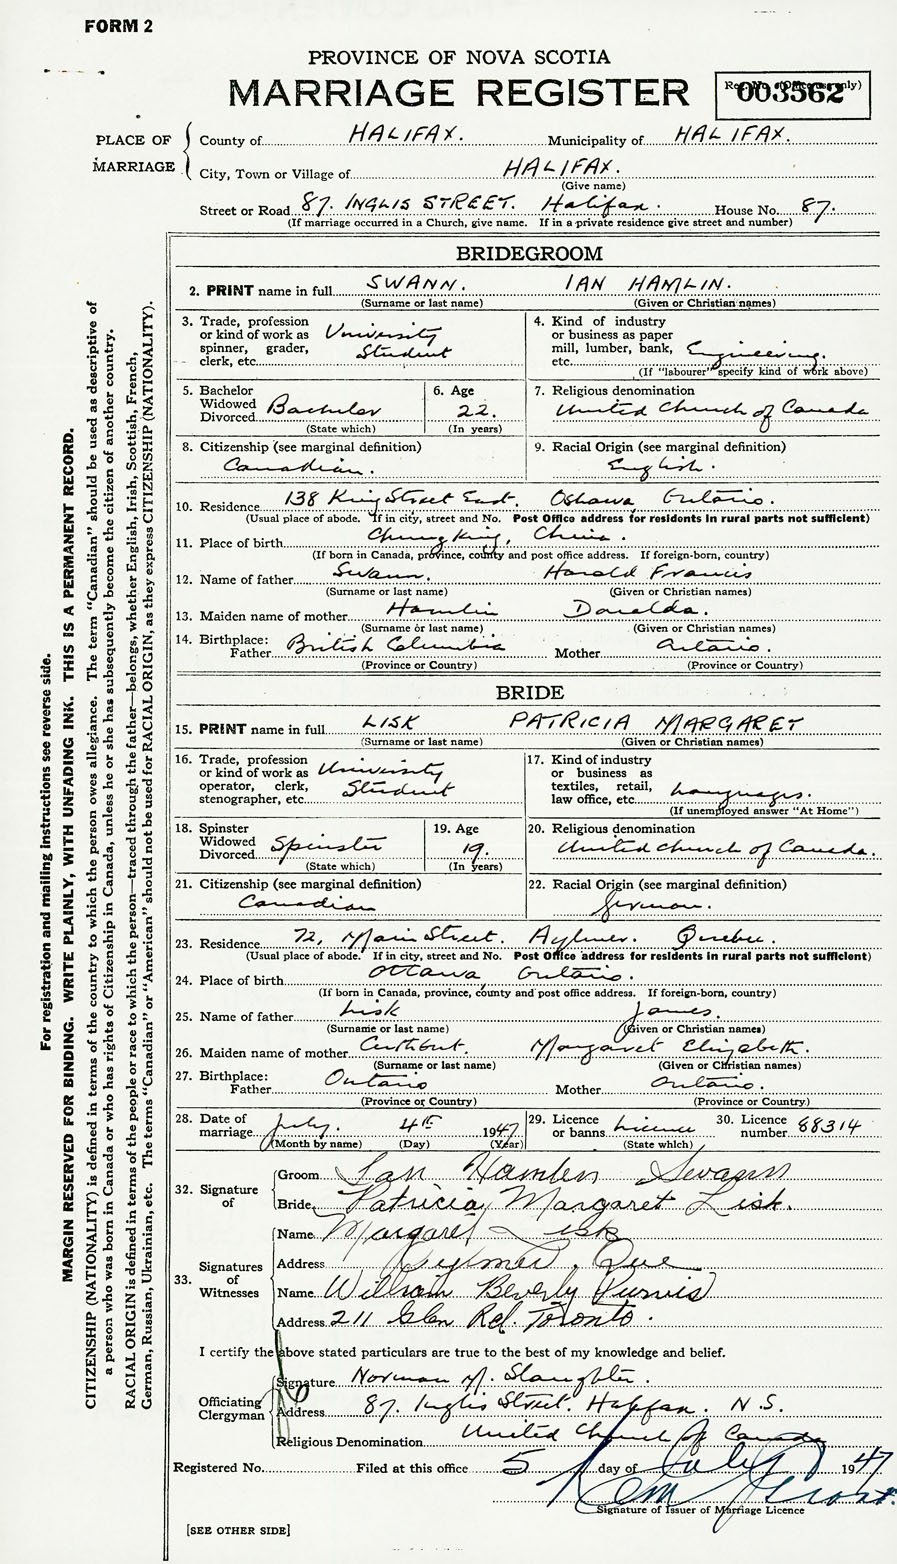 FORM 2
PROVINCE OF NOVA SCOTIA
MARRIAGE REGISTER
Reg. No. (Office use only)
003562
PLACE OF MARRIAGE
County of HALIFAX. Municipality of HALIFAX.
City, Town or Village of HALIFAX.
(Give name)
Street or Road 87. INGLIS STREET. Halifax. House No. 87.
(If marriage occurred in a Church, give name. If in a private residence give street and number)
BRIDEGROOM
2. PRINT name in full SWANN. IAN HAMLIN.
(Surname or last name) (Given or Christian names)
3. Trade, profession or kind of work as spinner, grader, clerk, etc. University Student
4. Kind of industry or business as paper mill, lumber, bank, etc. Engineering.
(If "labourer" specify kind of work above)
5. Bachelor Widowed Divorced Bachelor
(State which)
6. Age 22.
(In years)
7. Religious denomination United Church of Canada
8. Citizenship (see marginal definition) Canadian.
9. Racial Origin (see marginal definition) English.
10. Residence 138 King Street East. Oshawa Ontario.
(Usual place of abode. If in city, street and No. Post Office address for residents in rural parts not sufficient)
11. Place of birth Chung King, China.
(If born in Canada, province, county and post office address. If foreign-born, country)
12. Name of father Swann. Harold Francis
(Surname or last name) (Given or Christian names)
13. Maiden name of mother Hamlin Donalda.
(Surname or last name) (Given or Christian names)
14. Birthplace: Father British Columbia Mother Ontario.
(Province or Country) (Province or Country)
BRIDE
15. PRINT name in full LISK PATRICIA MARGARET
(Surname or last name) (Given or Christian names)
16. Trade, profession or kind of work as operator, clerk, stenographer, etc. University Student
17. Kind of industry or business as textiles, retail, law office, etc. Languages.
(If unemployed answer "At Home")
18. Spinster Widowed Divorced Spinster
(State which)
19. Age 19.
(In years)
20. Religious denomination United Church of Canada.
21. Citizenship (see marginal definition) Canadian
22. Racial Origin (see marginal definition) German.
23. Residence 72, Main Street. Aylmer. Quebec.
(Usual place of abode. If in city, street and No. Post Office address for residents in rural parts not sufficient)
24. Place of birth Ottawa Ontario.
(If born in Canada, province, county and post office address. If foreign-born, country)
25. Name of father Lisk James.
(Surname or last name) (Given or Christian names)
26. Maiden name of mother Cuthbert. Margaret Elizabeth.
(Surname or last name) (Given or Christian names)
27. Birthplace: Father Ontario Mother Ontario.
(Province or Country) (Province or Country)
28. Date of marriage July. 4th 1947
(Month by name) (Day) (Year)
29. Licence or banns Licence
(State which)
30. Licence number 88314
32. Signature of
Groom Ian Hamlin Swann
Bride Patricia Margaret Lisk.
33. Signatures of Witnesses
Name Margaret Lisk
Address Aylmer, Que
Name William Beverly Purvis
Address 211 Glen Rd. Toronto.
I certify the above stated particulars are true to the best of my knowledge and belief.
Officiating Clergyman
Signature Norman M. Slaughter.
Address 87. Inglis Street. Halifax. N.S.
Religious Denomination United Church of Canada
Registered No. Filed at this office 5 day of July 1947
Signature of Issuer of Marriage Licence
[SEE OTHER SIDE]
For registration and mailing instructions see reverse side.
MARGIN RESERVED FOR BINDING. WRITE PLAINLY, WITH UNFADING INK. THIS IS A PERMANENT RECORD.
CITIZENSHIP (NATIONALITY) is defined in terms of the country to which the person owes allegiance. The term "Canadian" should be used as descriptive of
a person who was born in Canada or who has rights of Citizenship in Canada, unless he or she has subsequently become the citizen of another country.
RACIAL ORIGIN is defined in terms of the people or race to which the person—traced through the father—belongs, whether English, Irish, Scottish, French,
German, Russian, Ukrainian, etc. The terms "Canadian" or "American" should not be used for RACIAL ORIGIN, as they express CITIZENSHIP (NATIONALITY).